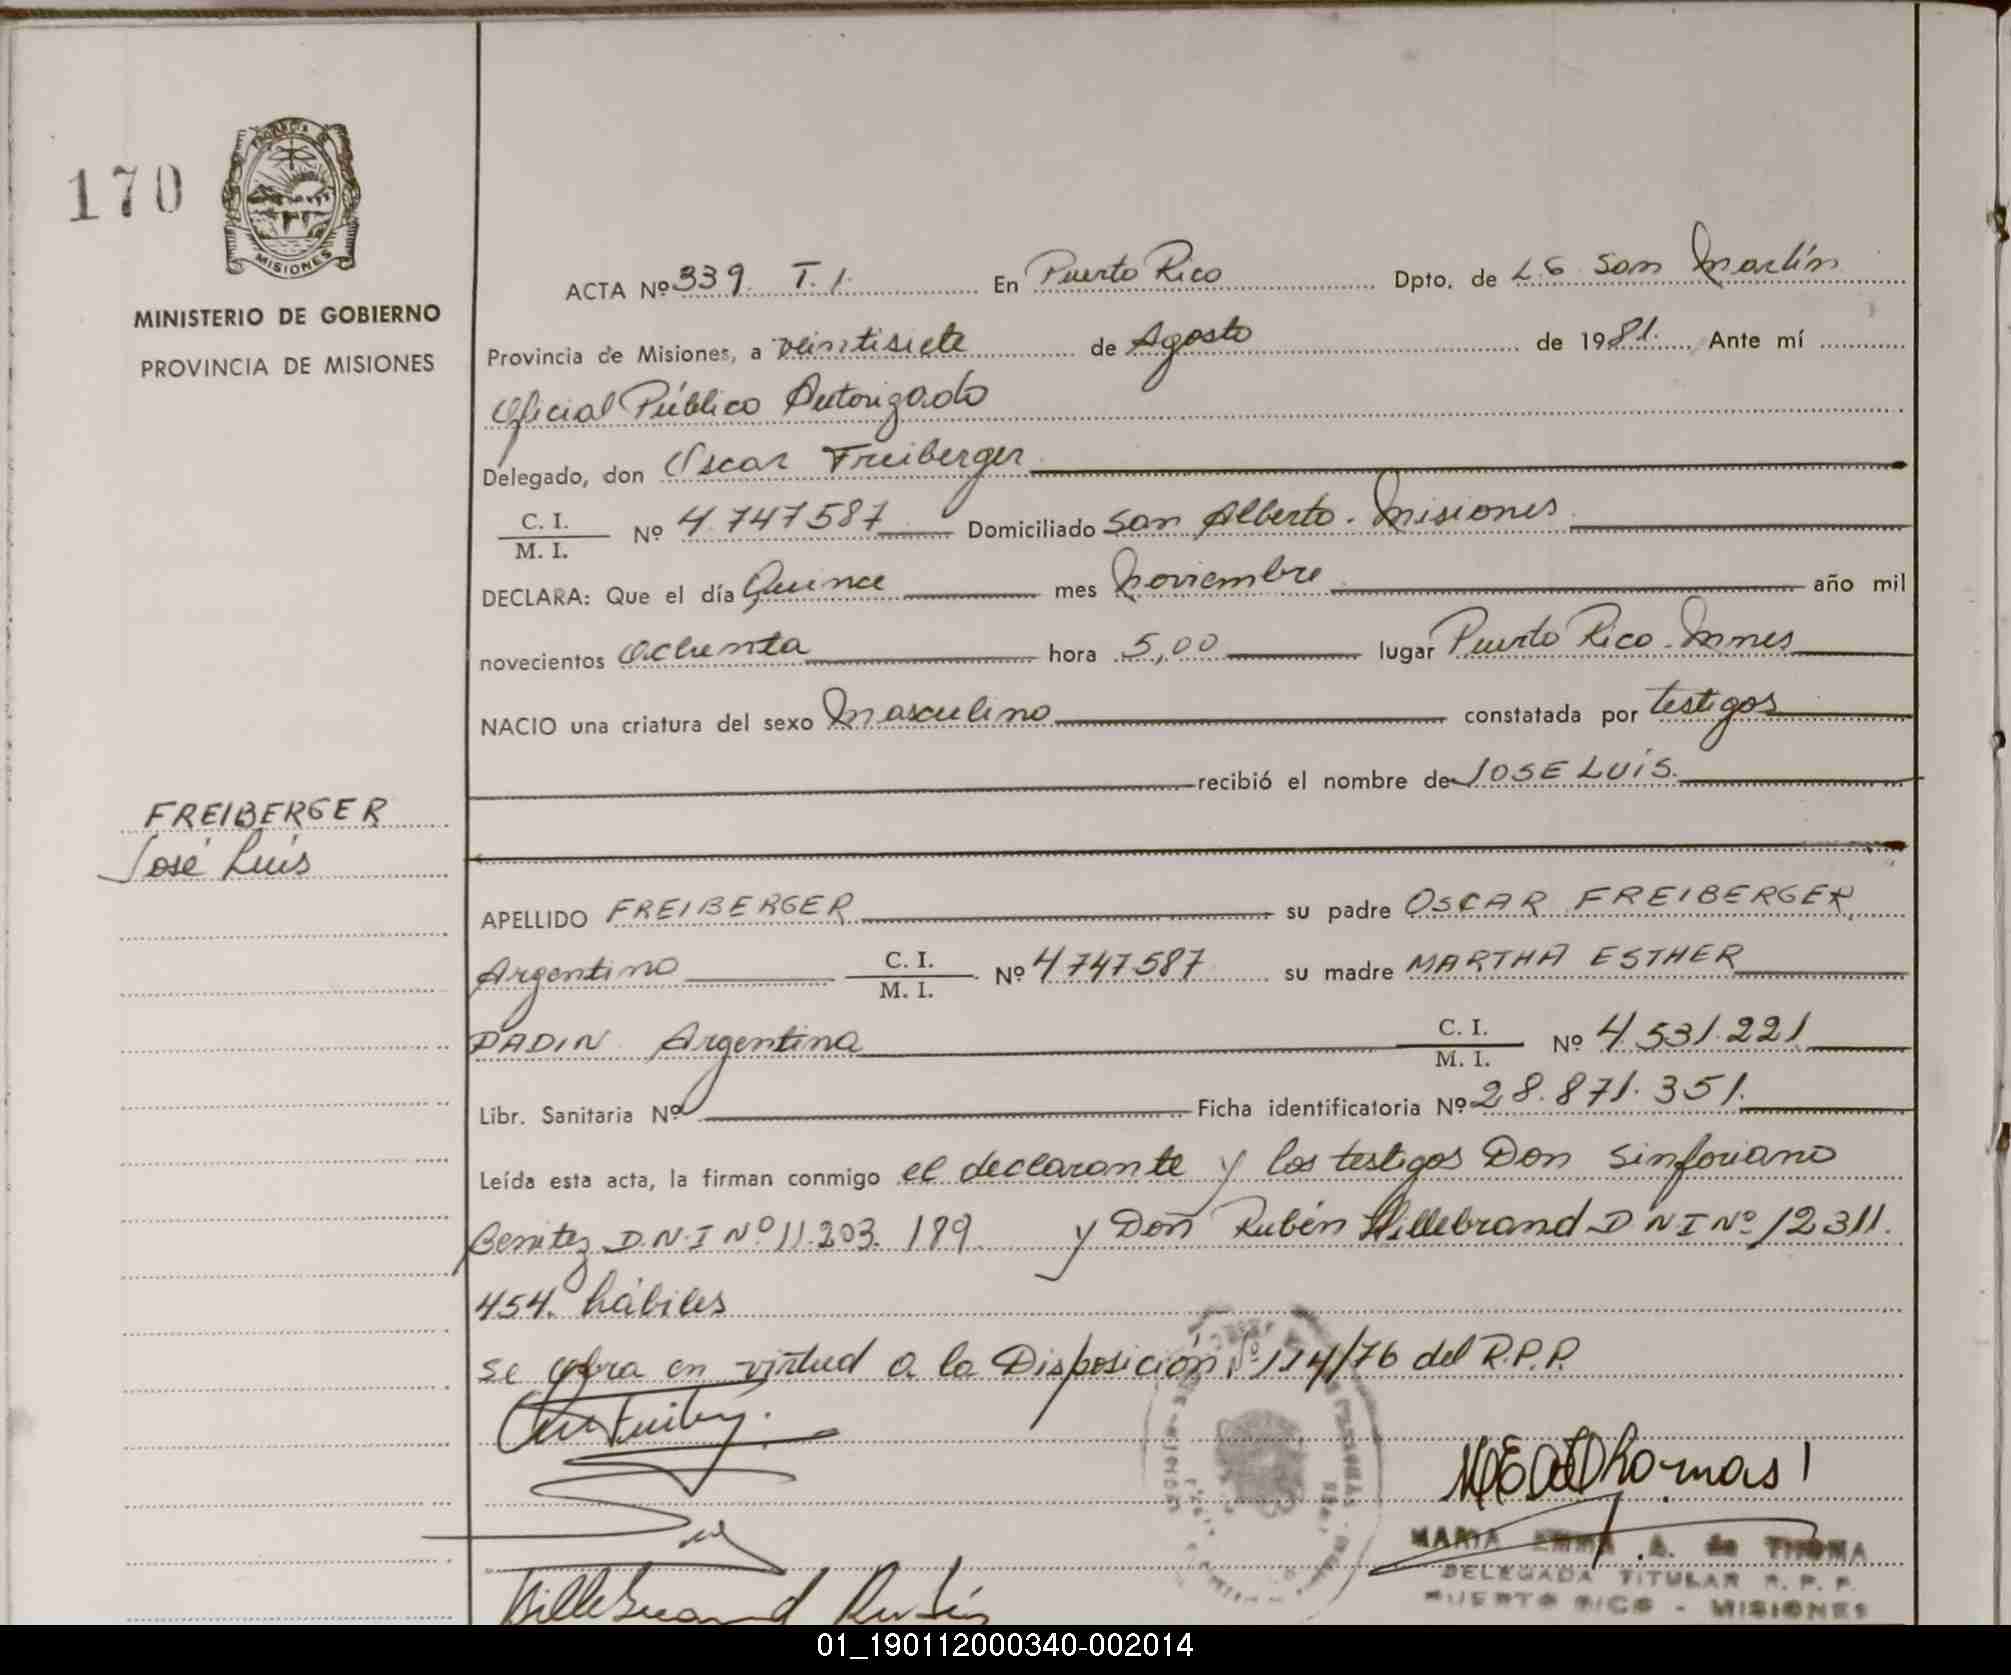 170
PROVINCIA DE
MISIONES
MINISTERIO DE GOBIERNO
PROVINCIA DE MISIONES
FREIBERGER
José Luis
ACTA Nº 339 T. 1. En Puerto Rico Dpto. de L.G. San Martín
Provincia de Misiones, a veintisiete de Agosto de 1981. Ante mí
Oficial Público Autorizado
Delegado, don Oscar Freiberger
C. I. / M. I. Nº 4.747587 Domiciliado San Alberto. Misiones
DECLARA: Que el día Quince mes Noviembre año mil
novecientos ochenta hora 5,00 lugar Puerto Rico. Mnes
NACIO una criatura del sexo Masculino constatada por testigos
recibió el nombre de JOSE LUIS.
APELLIDO FREIBERGER su padre OSCAR FREIBERGER
Argentino C. I. / M. I. Nº 4747587 su madre MARTHA ESTHER
PADIN Argentina C. I. / M. I. Nº 4.531.221
Libr. Sanitaria Nº Ficha identificatoria Nº 28.871.351.
Leída esta acta, la firman conmigo el declarante y los testigos Don Sinforiano
Benitez D.N.I Nº 11.203.189 y Don Rubén Hillebrand D N I Nº 12311.
454. hábiles
se labra en virtud a la Disposición Nº 114/76 del R.P.P.
Hillebrand Rubén
MARIA EMMA A. de
DELEGADA TITULAR R. P. P.
PUERTO RICO - MISIONES
01_190112000340-002014